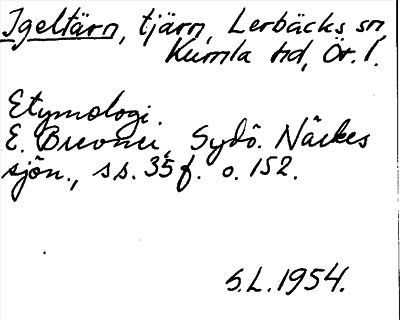 Igeltärn, tjärn, Lerbäcks sn,
Kumla hd, Ör. l.
Etymologi.
E. Brevner, Sydö. Närkes
sjön., ss. 35 f. o. 152.
S.L. 1954.